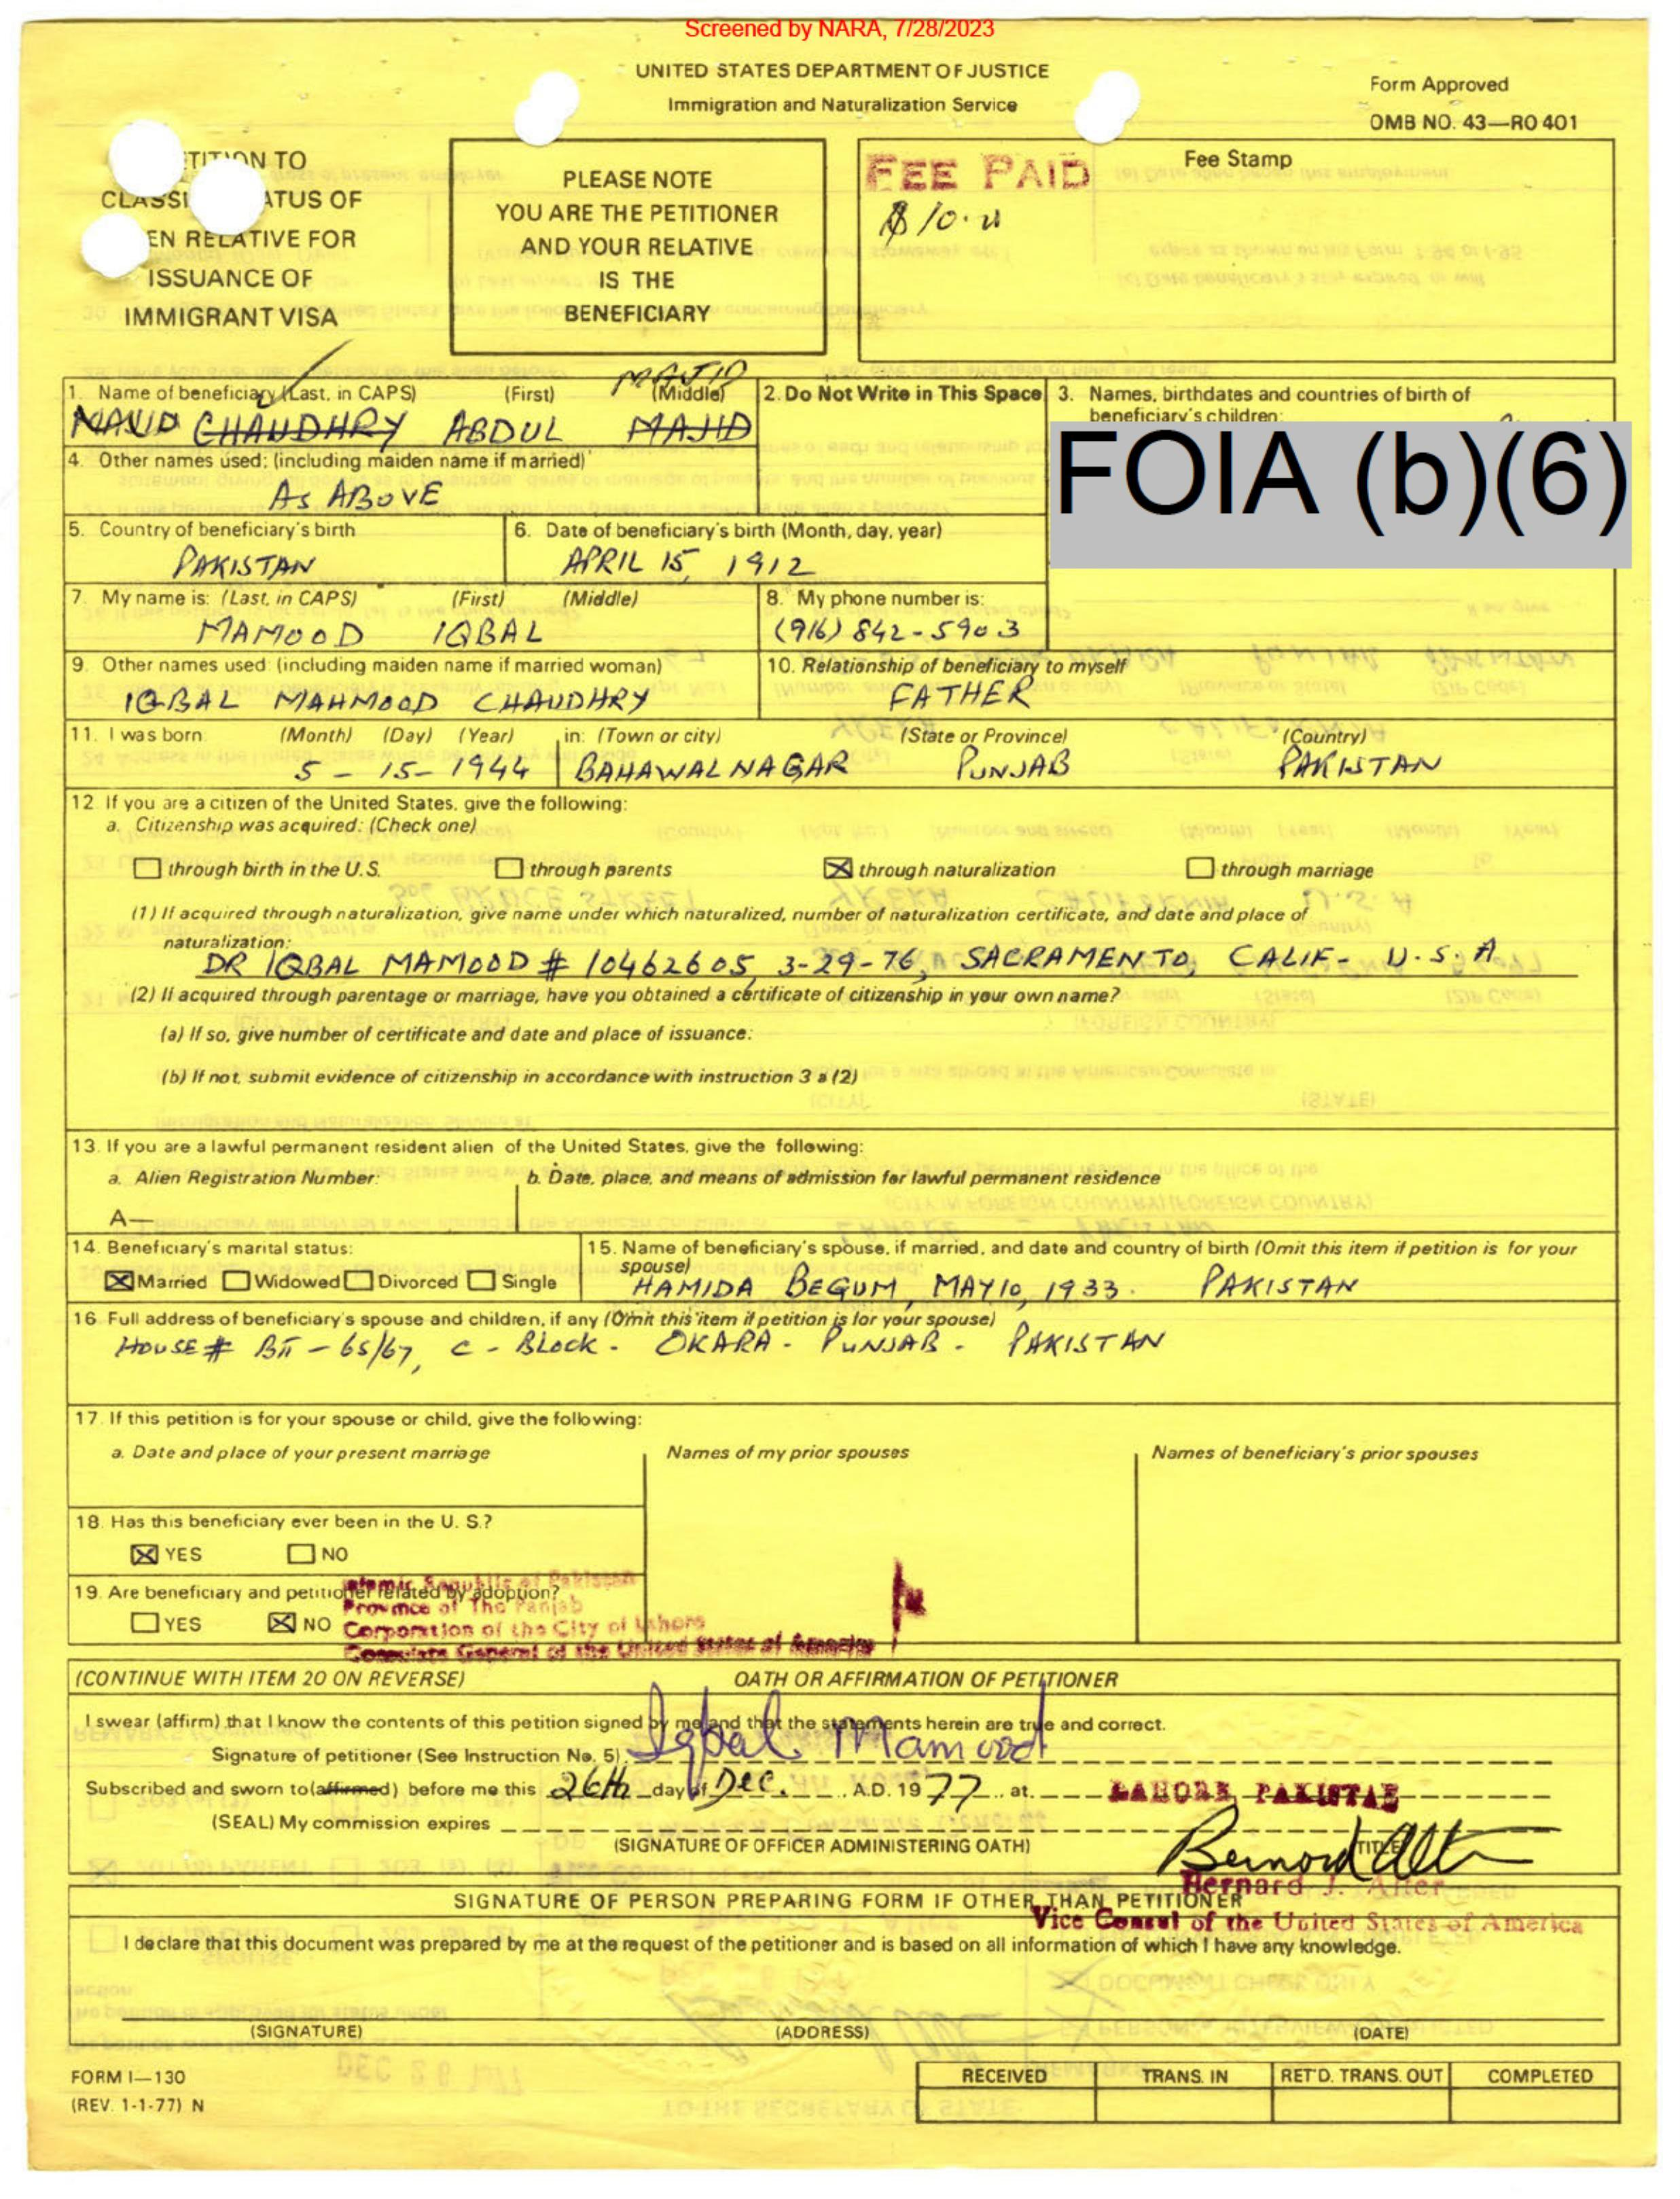 Screened by NARA, 7/28/2023
UNITED STATES DEPARTMENT OF JUSTICE
Immigration and Naturalization Service
Form Approved
OMB NO. 43—RO 401
TITION TO
CLASSI ATUS OF
EN RELATIVE FOR
ISSUANCE OF
IMMIGRANT VISA
PLEASE NOTE
YOU ARE THE PETITIONER
AND YOUR RELATIVE
IS THE
BENEFICIARY
FEE PAID
Fee Stamp
1. Name of beneficiary (Last, in CAPS) (First) (Middle)
MAJID
CHAUDHRY ABDUL MAJID
2. Do Not Write in This Space
3. Names, birthdates and countries of birth of
beneficiary's children:
FOIA (b)(6)
4. Other names used: (including maiden name if married)
AS ABOVE
5. Country of beneficiary's birth
PAKISTAN
6. Date of beneficiary's birth (Month, day, year)
APRIL 15, 1912
7. My name is: (Last, in CAPS) (First) (Middle)
MAMOOD IQBAL
8. My phone number is:
(916) 842-5903
9. Other names used: (including maiden name if married woman)
IQBAL MAHMOOD CHAUDHRY
10. Relationship of beneficiary to myself
FATHER
11. I was born: (Month) (Day) (Year) in: (Town or city) (State or Province) (Country)
5 - 15 - 1944 BAHAWALNAGAR PUNJAB PAKISTAN
12. If you are a citizen of the United States, give the following:
a. Citizenship was acquired: (Check one)
through birth in the U.S. through parents through naturalization through marriage
(1) If acquired through naturalization, give name under which naturalized, number of naturalization certificate, and date and place of
naturalization:
DR IQBAL MAMOOD # 10462605, 3-29-76, SACRAMENTO, CALIF- U.S.A
(2) If acquired through parentage or marriage, have you obtained a certificate of citizenship in your own name?
(a) If so, give number of certificate and date and place of issuance:
(b) If not, submit evidence of citizenship in accordance with instruction 3 a (2)
13. If you are a lawful permanent resident alien of the United States, give the following:
a. Alien Registration Number: b. Date, place, and means of admission for lawful permanent residence
A—
14. Beneficiary's marital status:
Married Widowed Divorced Single
15. Name of beneficiary's spouse, if married, and date and country of birth (Omit this item if petition is for your
spouse)
HAMIDA BEGUM, MAY 10, 1933. PAKISTAN
16. Full address of beneficiary's spouse and children, if any (Omit this item if petition is for your spouse)
HOUSE # BII - 65/67, C - BLOCK - OKARA - PUNJAB - PAKISTAN
17. If this petition is for your spouse or child, give the following:
a. Date and place of your present marriage Names of my prior spouses Names of beneficiary's prior spouses
18. Has this beneficiary ever been in the U. S.?
YES NO
19. Are beneficiary and petitioner related by adoption?
YES NO
Islamic Republic of Pakistan
Province of The Panjab
Corporation of the City of Lahore
Consulate General of the United States of America
(CONTINUE WITH ITEM 20 ON REVERSE) OATH OR AFFIRMATION OF PETITIONER
I swear (affirm) that I know the contents of this petition signed by me and that the statements herein are true and correct.
Signature of petitioner (See Instruction No. 5): Iqbal Mamood
Subscribed and sworn to (affirmed) before me this 26th day of Dec. , A.D. 1977 , at LAHORE, PAKISTAN
(SEAL) My commission expires
(SIGNATURE OF OFFICER ADMINISTERING OATH) TITLE
Bernard Alter
Bernard J. Alter
Vice Consul of the United States of America
SIGNATURE OF PERSON PREPARING FORM IF OTHER THAN PETITIONER
I declare that this document was prepared by me at the request of the petitioner and is based on all information of which I have any knowledge.
(SIGNATURE) (ADDRESS) (DATE)
FORM I—130
(REV. 1-1-77) N
RECEIVED TRANS. IN RET'D. TRANS. OUT COMPLETED